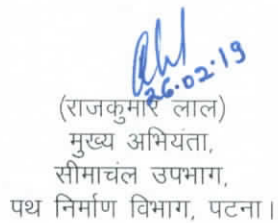 26.02.19
(राजकुमार लाल)
मुख्य अभियंता,
सीमाचंल उपभाग,
पथ निर्माण विभाग, पटना।